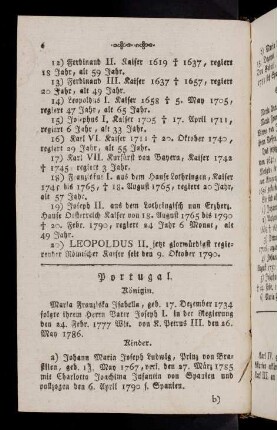 6
12) Ferdinand II. Kaiser 1619 † 1637, regiert
18 Jahr, alt 59 Jahr.
13) Ferdinand III. Kaiser 1637 † 1657, regiert
20 Jahr, alt 49 Jahr.
14) Leopoldus I. Kaiser 1658 † 5. May 1705,
regiert 47 Jahr, alt 65 Jahr.
15) Josephus I, Kaiser 1705 † 17. April 1711,
regiert 6 Jahr, alt 33 Jahr.
16) Karl VI. Kaiser 1711 † 20. Oktober 1740,
regiert 29 Jahr, alt 55 Jahr.
17) Karl VII. Kurfürst von Bayern, Kaiser 1742
† 1745, regiert 3 Jahr.
18) Franziskus I. aus dem Hause Lothringen, Kaiser
1745 bis 1765, † 18. August 1765, regiert 20 Jahr,
alt 57 Jahr.
19) Joseph II. aus dem Lothringisch nun Erzherz.
Hause Oesterreich Kaiser von 18. August 1765 bis 1790
† 20. Febr. 1790, regiert 24 Jahr 6 Monat, alt
49 Jahr.
20) LEOPOLDUS II. jetzt glorwürdigst regie-
render Römischer Kaiser seit den 9. Oktober 1790.
Portugal.
Königin.
Maria Franziska Isabella, geb. 17. Dezember 1734
folgte ihrem Herrn Vater Joseph I. in der Regierung
den 24. Febr. 1777 Wit. von K. Petrus III. den 26.
May 1786.
Kinder.
a) Johann Maria Joseph Ludwig, Prinz von Bra-
silien, geb. 13. May 1767, verl. den 27. März 1785
mit Charlotta Joachima Infantin von Spanien und
vollzogen den 6. April 1790 f. Spanien.
b)